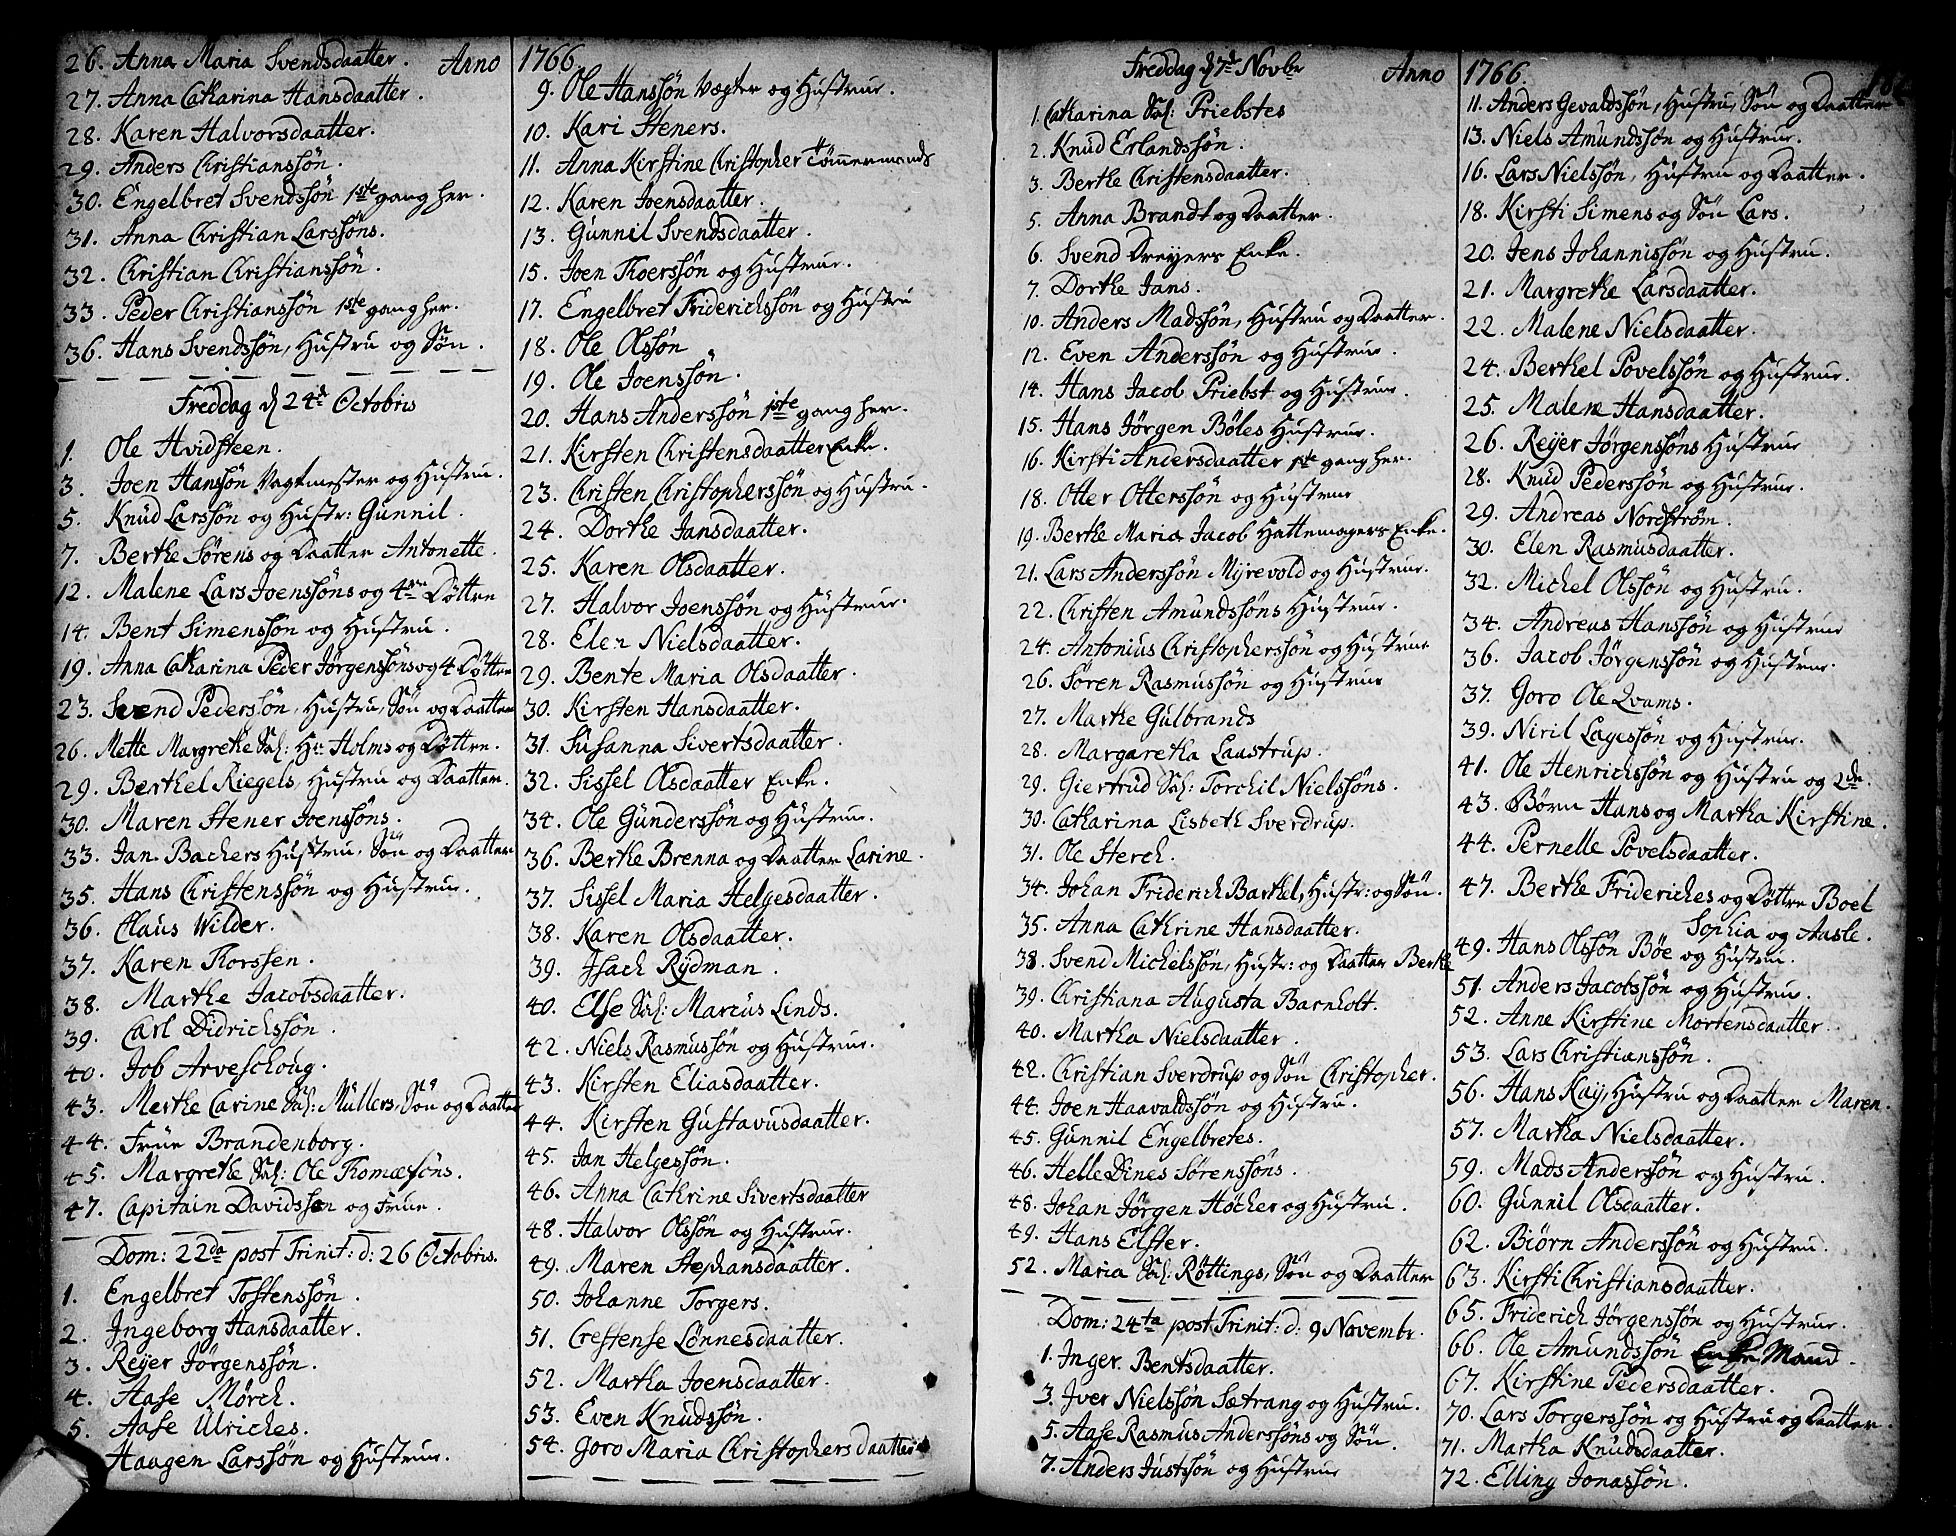 26. Anna Maria Svendsdaatter. Anno
27. Anna Catharina Hansdaatter.
28. Karen Halvorsdaatter.
29. Anders Christianssön.
30. Engelbret Svendssön 1ste gang her.
31. Anna Christian Larssöns.
32. Christian Christianssön.
33. Peder Christianssön 1ste gang her.
36. Hans Svendssön, Hustru og Sön.
Freddag d 24de Octobris
1. Ole Hvidsteen.
3. Joen Hanssön Vagtmester og Hustru.
5. Knud Larssön og Hustr: Gunnil.
7. Berthe Sörens og Daatter Antonette.
12. Malene Lars Joenssöns og 4re Döttre
14. Bent Simenssön og Hustru.
19. Anna Catharina Peder Jörgenssöns og 4 Döttre
23. Svend Pederssön, Hustru, Sön og Daatter
26. Mette Margrethe Sal: Hr: Holms og Döttre.
29. Berthel Riegels, Hustru og Daatter.
30. Maren Stener Joenssöns.
33. Jan Bachers Hustru, Sön og Daatter
35. Hans Christenssön og Hustrue.
36. Claus Wilder.
37. Karen Thorssen.
38. Marthe Jacobsdaatter.
39. Carl Didrichssön.
40. Job Arveschoug.
43. Merthe Carine Sal: Müllers, Sön og Daatter
44. Frue Brandenborg.
45. Margrethe Sal: Ole Thomæsöns.
47. Capitain Davidssen og Frue.
Dom: 22da post Trinit: d: 26 Octobris.
1. Engelbret Tostenssön.
2. Jngeborg Hansdaatter.
3. Reyer Jörgenssön.
4. Aase Mörch.
5. Aase Ulriches.
Haagen Larssön og Hustrue.
1766.
9. Ole Hanssön Vægter og Hustrue.
10. Kari Steners.
11. Anna Kirstine Christopher Tömmermands
12. Karen Joensdaatter.
13. Gunnil Svendsdaatter.
15. Joen Thoerssön og Hustrue.
17. Engelbret Friderichssön og Hustru
18. Ole Olssön
19. Ole Joenssön.
20. Hans Anderssön 1ste gang her.
21. Kirsten Christensdaatter Enke.
23. Christen Christopherssön og Hustru.
24. Dorthe Jansdaatter.
25. Karen Olsdaatter.
27. Halvor Joenssön og Hustrue.
28. Elen Nielsdaatter.
29. Bente Maria Olsdaatter.
30. Kirsten Hansdaatter.
31. Susanna Sivertsdaatter.
32. Sissel Olsdaatter Enke.
34. Ole Gunderssön og Hustrue.
36. Berthe Brenna og Daatter Larine.
37. Sissel Maria Helgesdaatter.
38. Karen Olsdaatter.
39. Jsach Rydman.
40. Else Sal: Marcus Linds.
42. Niels Rasmussön og Hustrue.
43. Kirsten Eliasdaatter.
44. Kirsten Gustavusdaatter.
45. Jan Helgessön.
46. Anna Cathrine Sivertsdaatter
48. Halvor Olssön og Hustrue.
49. Maren Stephansdaatter.
50. Johanne Torgers.
51. Crestense Lönnesdaatter.
52. Martha Joensdaatter.
53. Even Knudssön.
54. Goro Maria Christophersdaatter
Freddag d 7de Novbr Anno
1. Catharina Sal: Priebstes
2. Knud Erlandssön.
3. Berthe Christensdaatter.
5. Anna Brandt og Daatter.
6. Svend Dreyers Enke.
7. Dorthe Jans.
10. Anders Madssön, Hustru og Daatter.
12. Even Anderssön og Hustrue.
14. Hans Jacob Priebst og Hustrue.
15. Hans Jörgen Böles Hustrue.
16. Kirsti Andersdaatter 1ste gang her.
18. Otter Otterssön og Hustrue
19. Berthe Maria Jacob Hattemagers Enke.
21. Lars Anderssön Myrevold og Hustrue.
22. Christen Amundssöns Hustrue.
24. Antonius Christopherssön og Hustrue
26. Sören Rasmussön og Hustrue
27. Marthe Gulbrands
28. Margaretha Laustrup.
29. Giertrud Sal: Torchil Nielssöns.
30. Catharina Lisbeth Sverdrup.
31. Ole Sterch.
34. Johan Friderich Barthel, Hustr: og Sön.
35. Anna Cathrine Hansdaatter.
38. Svend Michelssön, Hustr: og Daatter Berthe
39. Christiana Augusta Barnholt.
40. Martha Nielsdaatter.
42. Christian Sverdrup og Sön Christopher.
44. Joen Haavaldssön og Hustru.
45. Gunnil Engelbretes.
46. Helle Dines Sörenssöns.
48. Johan Jörgen Höcher og Hustru.
49. Hans Elster.
52. Maria Sal: Röttings, Sön og Daatter
Dom: 24ta post Trinit: d: 9 Novembr.
1. Jnger Bentsdaatter.
3. Jver Nielssön Sætrang og Hustru.
5. Aase Rasmus Anderssöns og Sön.
7. Anders Justssön og Hustrue
1766.
11. Anders Gevaldssön, Hustru, Sön og Daatter
13. Niels Amundssön og Hustrue.
16. Lars Nielssön, Hustru og Daatter.
18. Kirsti Simens og Sön Lars.
20. Jens Johannissön og Hustru.
21. Margrethe Larsdaatter.
22. Malene Nielsdaatter.
24. Berthel Povelssön og Hustrue.
25. Malene Hansdaatter.
26. Reyer Jörgenssöns Hustrue
28. Knud Pederssön og Hustrue.
29. Andreas Nordström.
30. Elen Rasmusdaatter.
32. Michel Olssön og Hustru.
34. Andreas Hanssön og Hustrue
36. Jacob Jörgenssön og Hustrue.
37. Goro Ole Qvams.
39. Niril Lagessön og Hustrue.
41. Ole Henrichssön og Hustru og 2de.
43. Börn Hans og Martha Kirstine.
44. Pernelle Povelsdaatter.
47. Berthe Friderichs og Döttre Boel
Sophia og Aasle.
49. Hans Olssön Böe og Hustru.
51. Anders Jacobssön og Hustrue.
52. Anne Kirstine Mortensdaatter.
53. Lars Christianssön.
56. Hans Kay, Hustru og Daatter Maren.
57. Martha Nielsdaatter.
59. Mads Anderssön og Hustru.
60. Gunnil Olsdaatter.
62. Biörn Anderssön og Hustru.
63. Kirsti Christiansdaatter.
65. Friderich Jörgenssön og Hustrue.
66. Ole Amundssön Enke Mand.
67. Kirstine Pedersdaatter.
70. Lars Torgerssön og Hustru og Daatter.
71. Martha Knudsdaatter.
72. Elling Jonassön.